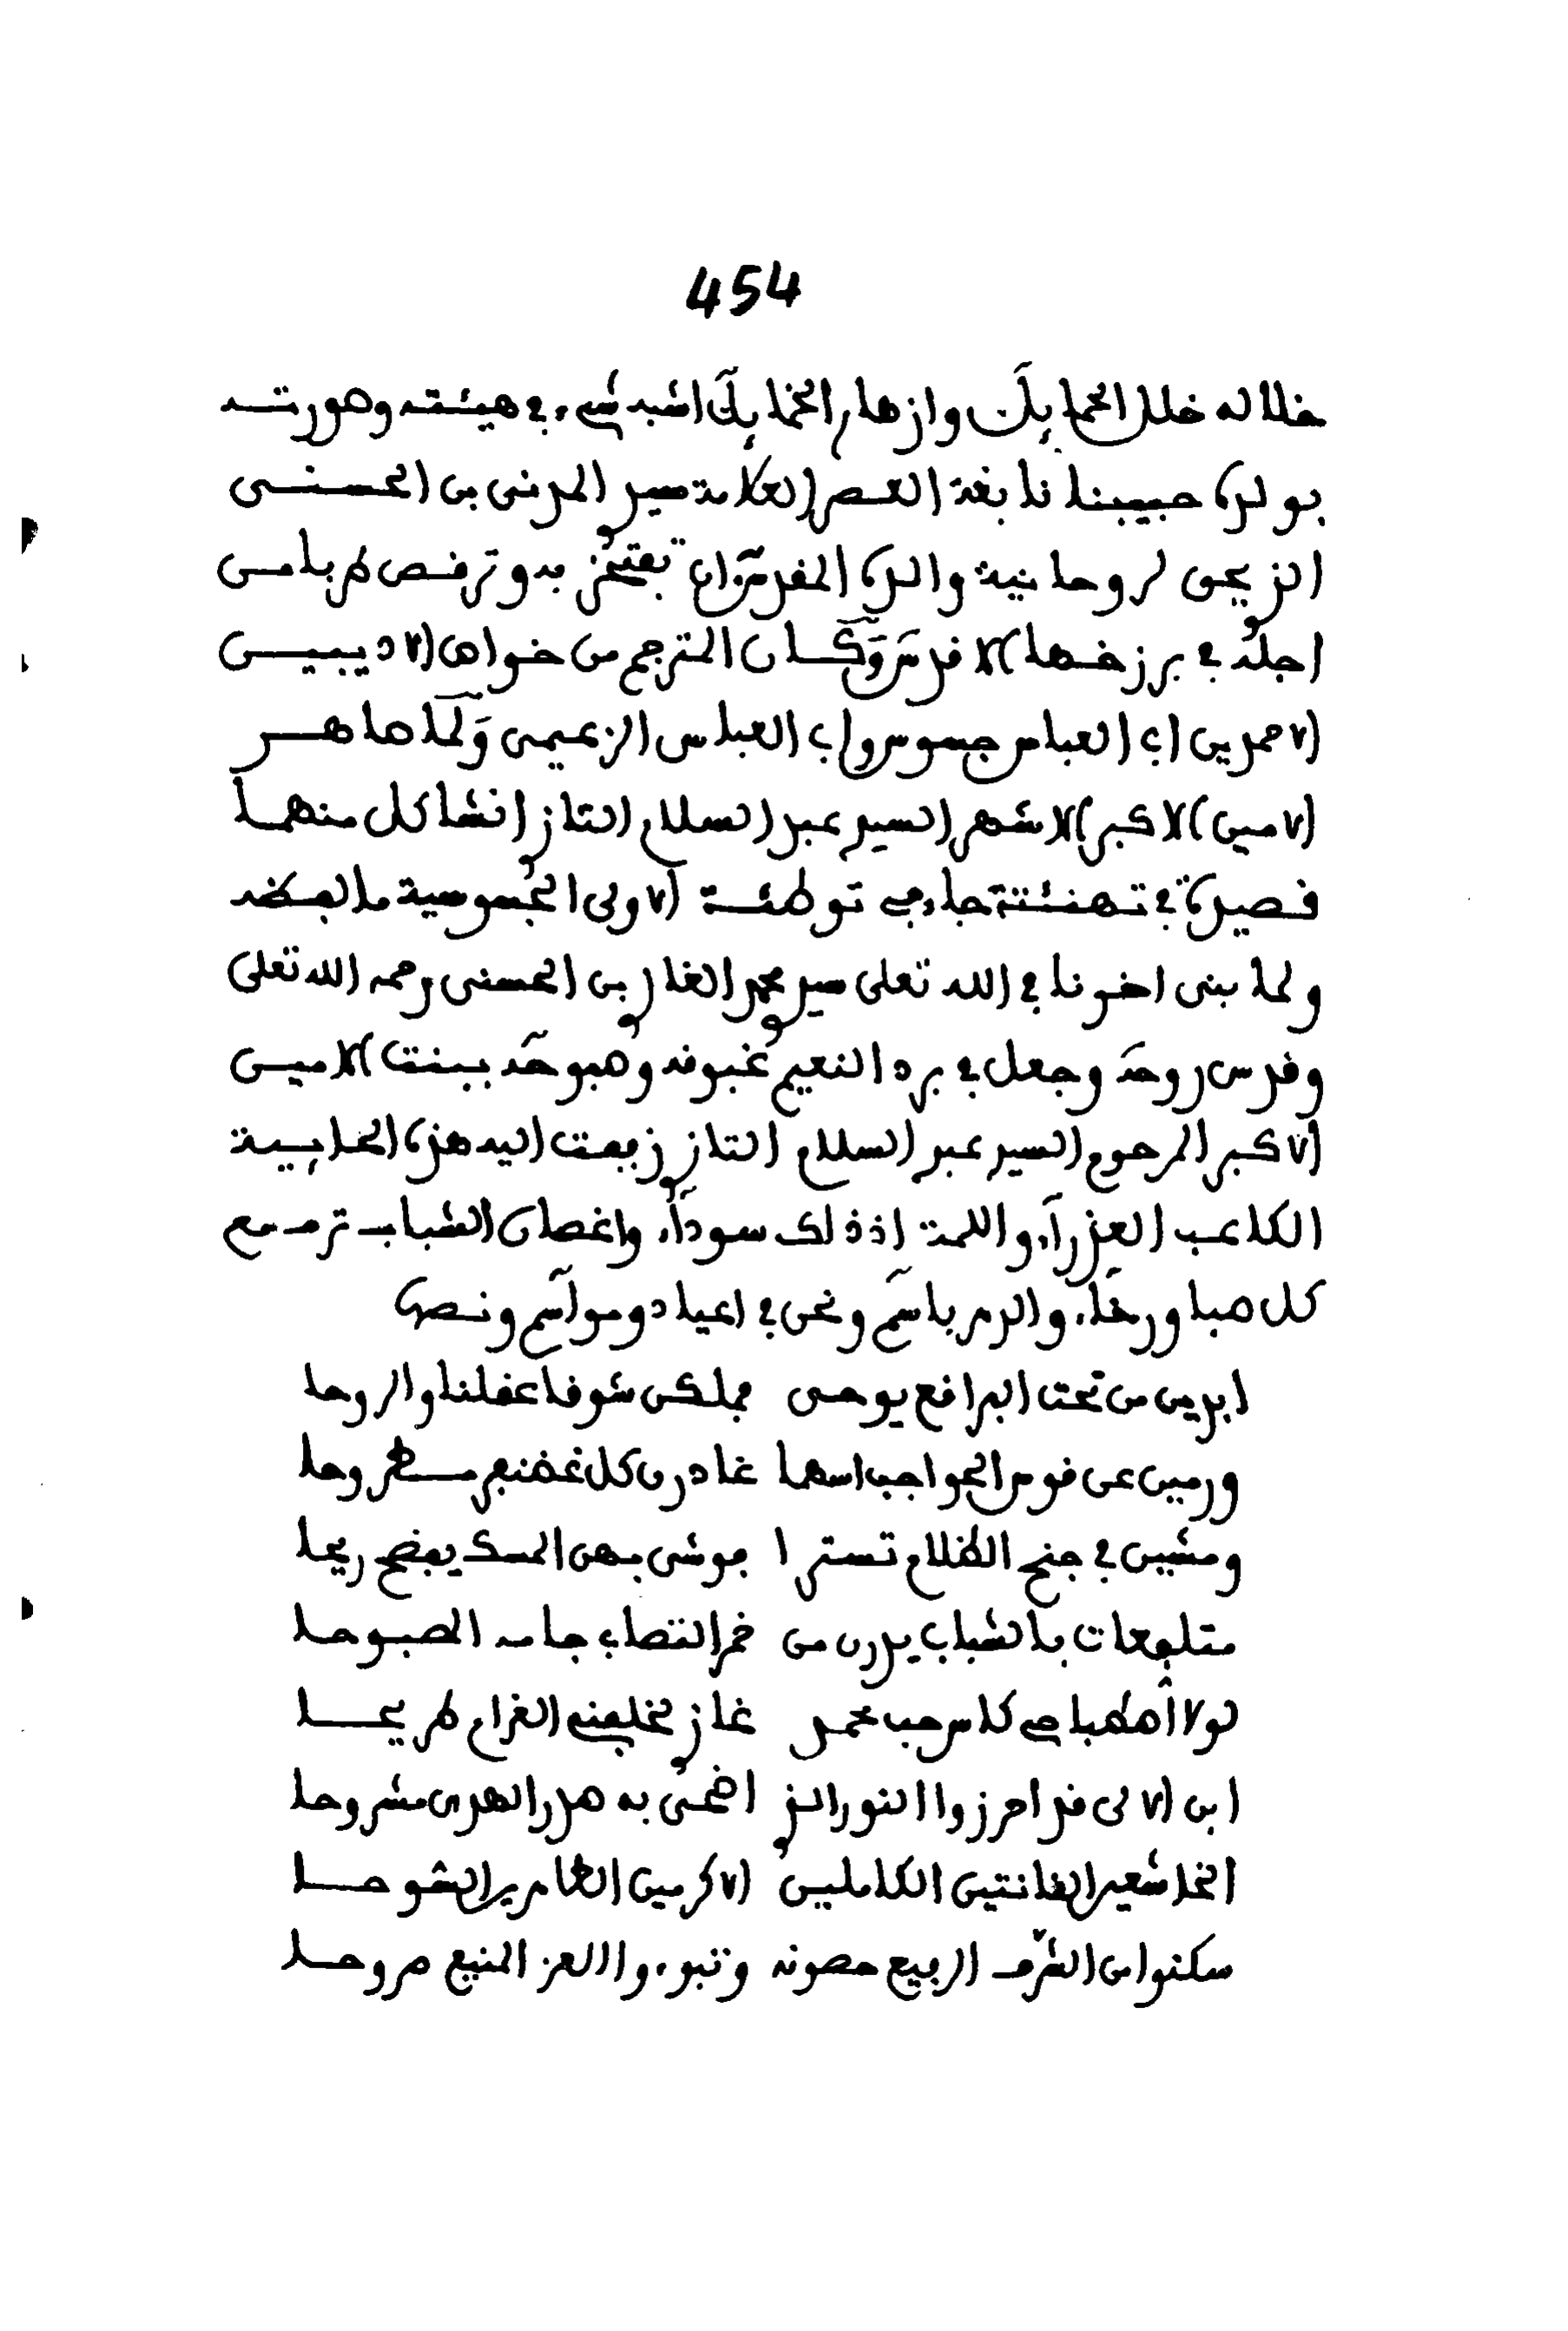 454
خلاله خلل الخمايل وازهار الخمايل اشبه شيء في هيئته وصورته
بولده حبيبنا نابغة العصر العلامة سيد المدني بن الحسني
الذي لروحانية والده المقدسة ان تفتخر به وترقص لمرباه من
اجله في برزخها الاقدس وكان المترجم من خواص الاديبين
الاحمدين ابي العباس جسوس وابي العباس الزعيمي ولما صاهر
الامين الاكبر الاشهر السيد عبد السلام التازي انشا كل منهما
قصيدة في تهنئته جاء في توطئة الاولى الجسوسية ما لفظه
ولما بنى اخونا في الله تعلى سيد محمد الغازي بن الحسني رحمه الله تعلى
وقدس روحه وجعل في برد النعيم غبوقه وصبوحه ببنت الامين
الاكبر المرحوم السيد عبد السلام التازي زففت اليه هذه الخابية
الكاعب العذراء، واللمة اذ ذاك سوداء، واغصان الشباب ترف مع
كل صبا ورخاء، والدهر باسم ونحن في اعياد ومواسم ونصها
ابرزن من تحت البراقع يوحى فملكن شوقا عقلنا والروحا
ورمين عن قوس الحواجب اسهما غادرن كل غضنفر مطروحا
ومشين في جنح الظلام تسترا فوشى بهن المسك يفضح ريحا
متلفعات بالشباب يدرن من خمر التصابي جامه المصبوحا
لولا اصطباحي كاس حب محمد غازي تخلفني الغرام طريحا
ابن الالى قد احرزوا النور الذي اضحى به صدر الهدى مشروحا
الخاشعين القانتين الكاملين الاكرمين الطاهرين الشوحا
سكنوا من الشرف الرفيع حصونه وتبوءوا العز المنيع صروحا